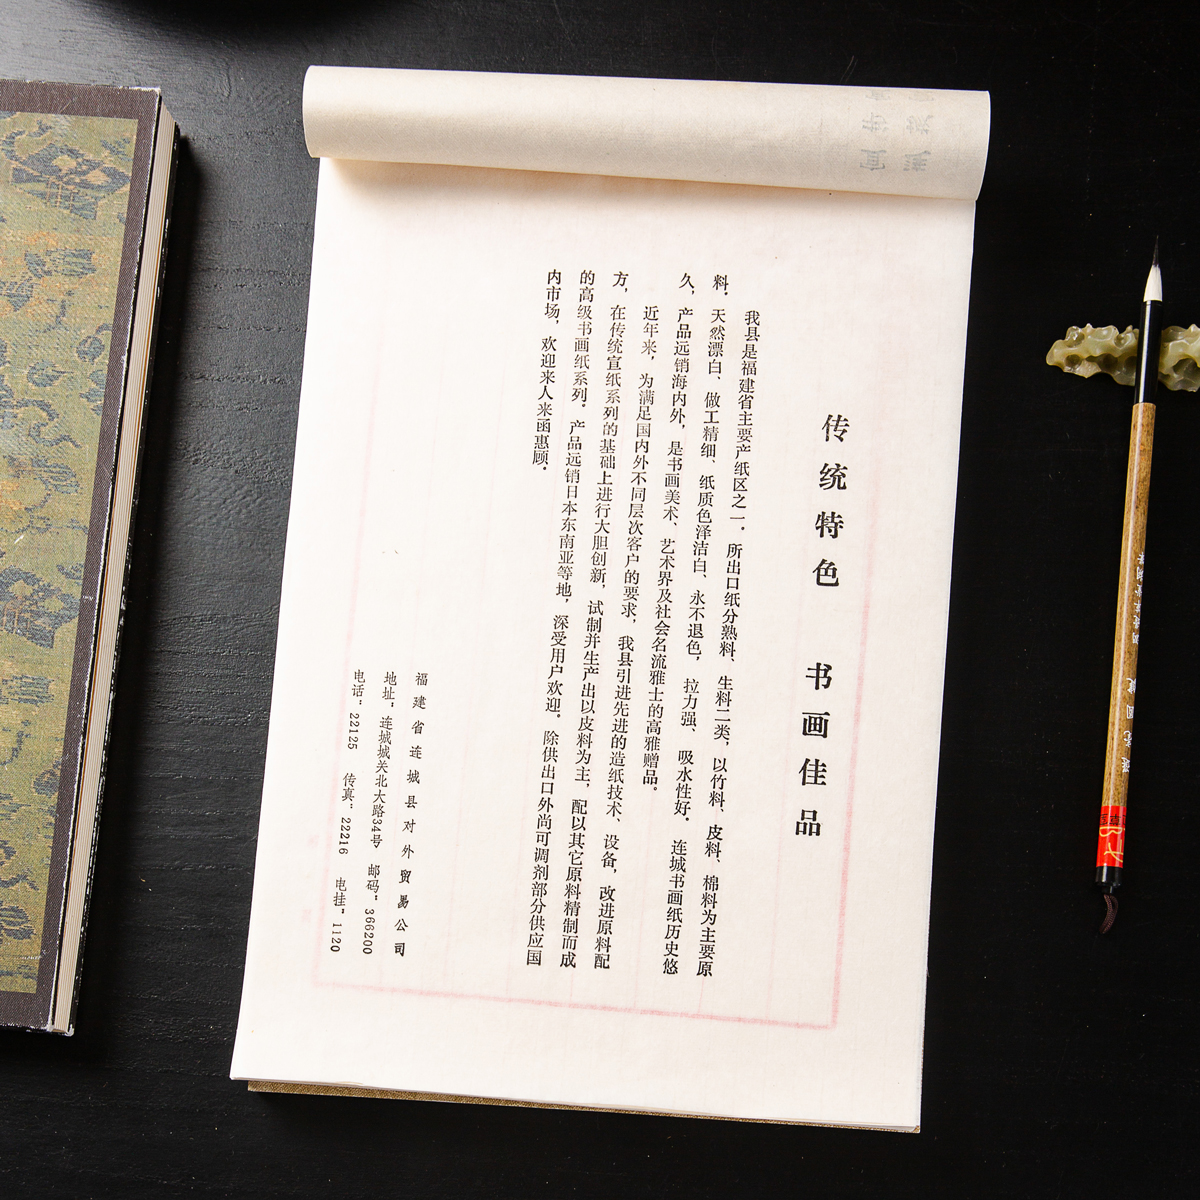 传统特色 书画佳品
我县是福建省主要产纸区之一．所出口纸分熟料、生料二类，以竹料、皮料、棉料为主要原
料．天然漂白、做工精细、纸质色泽洁白、永不退色，拉力强、吸水性好．连城书画纸历史悠
久，产品远销海内外，是书画美术、艺术界及社会名流雅士的高雅赠品。
近年来，为满足国内外不同层次客户的要求，我县引进先进的造纸技术、设备，改进原料配
方，在传统宣纸系列的基础上进行大胆创新，试制并生产出以皮料为主，配以其它原料精制而成
的高级书画纸系列．产品远销日本东南亚等地，深受用户欢迎。除供出口外尚可调剂部分供应国
内市场，欢迎来人来函惠顾．
福建省连城县对外贸易公司
地址：连城城关北大路34号 邮码：366200
电话：22125 传真：22216 电挂：1120